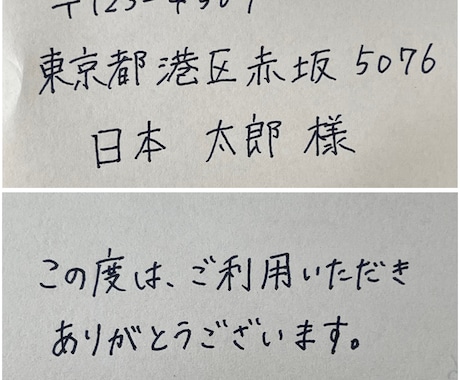 東京都港区赤坂5076
日本 太郎 様
この度は、ご利用いただき
ありがとうございます。